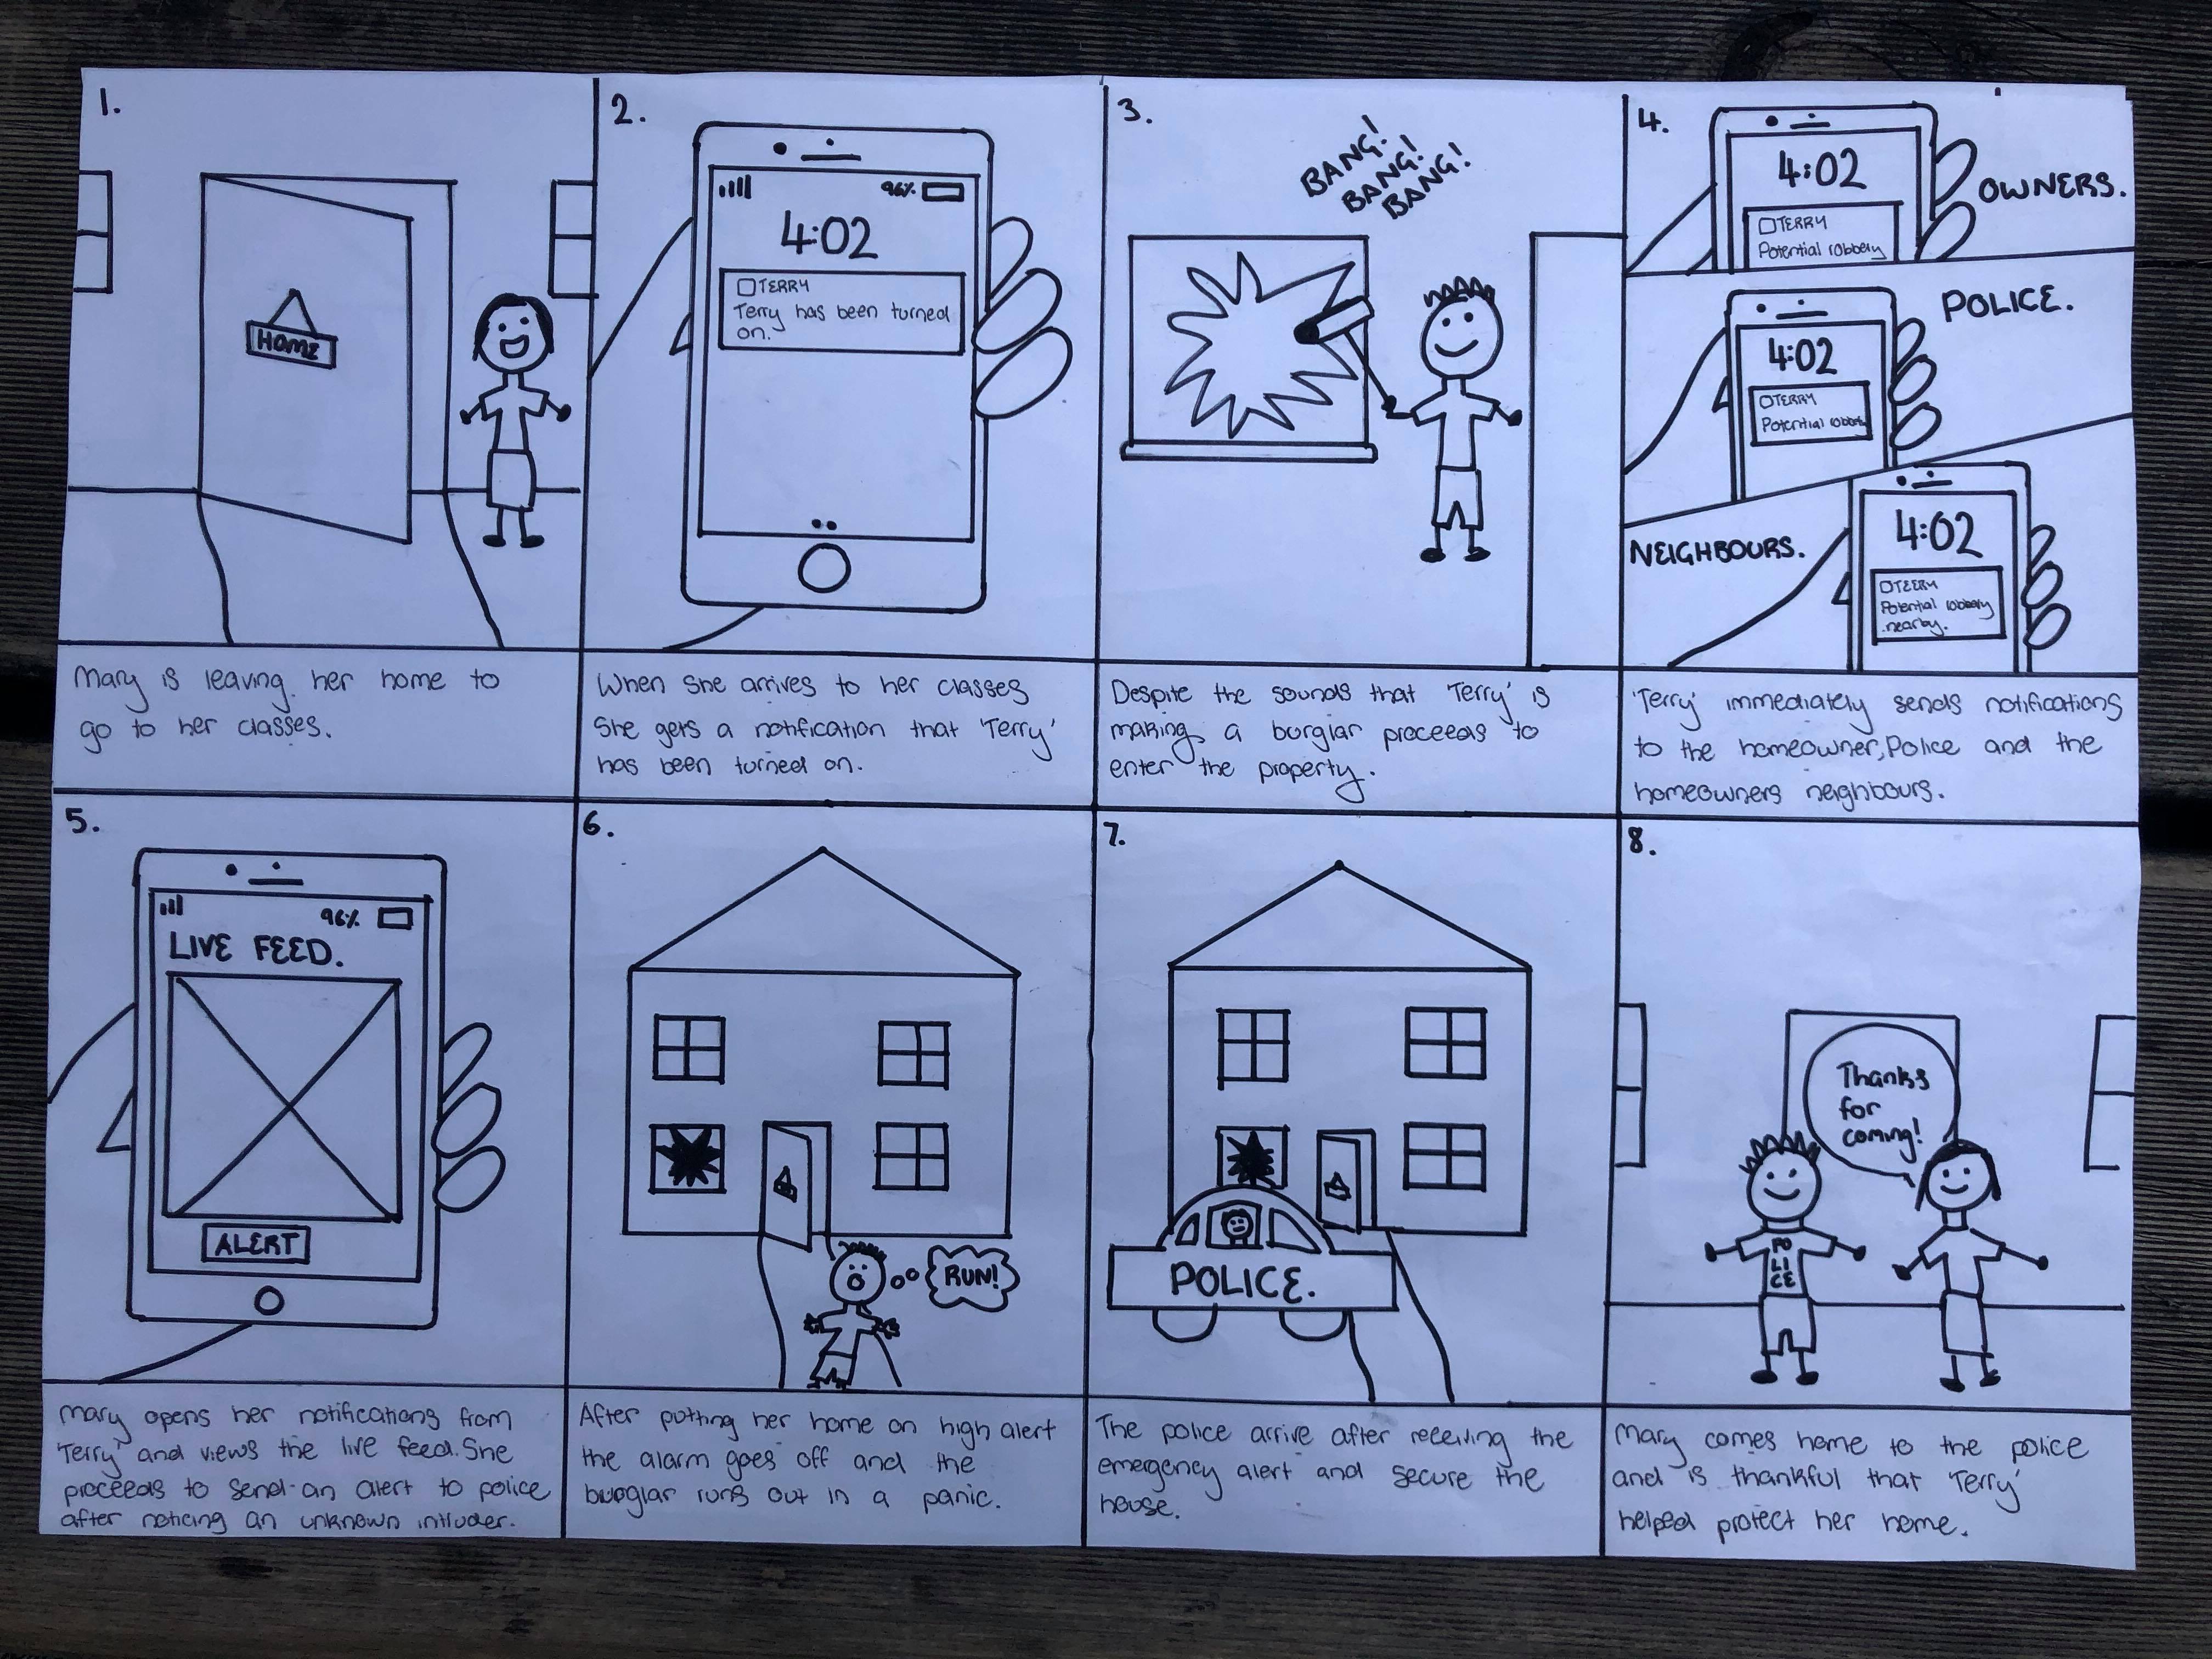 1.
HOME
Mary is leaving her home to
go to her classes.
2.
96%
4:02
TERRY
Terry has been turned
on.
When she arrives to her classes
She gets a notification that 'Terry'
has been turned on.
3.
BANG!
BANG!
BANG!
Despite the sounds that 'Terry' is
making, a burglar proceeds to
enter the property.
4.
4:02
TERRY
Potential robbery
OWNERS.
POLICE.
4:02
TERRY
Potential robbery
NEIGHBOURS.
4:02
TEERY
Potential robbery
nearby.
'Terry' immediately sends notifications
to the homeowner, Police and the
homeowners neighbours.
5.
96%
LIVE FEED.
ALERT
Mary opens her notifications from
'Terry' and views the live feed. She
proceeds to send an alert to police
after noticing an unknown intruder.
6.
RUN!
After putting her home on high alert
the alarm goes off and the
burglar runs out in a panic.
7.
POLICE.
The police arrive after receiving the
emergency alert and secure the
house.
8.
Thanks
for
coming!
PO
LI
CE
Mary comes home to the police
and is thankful that 'Terry'
helped protect her home.